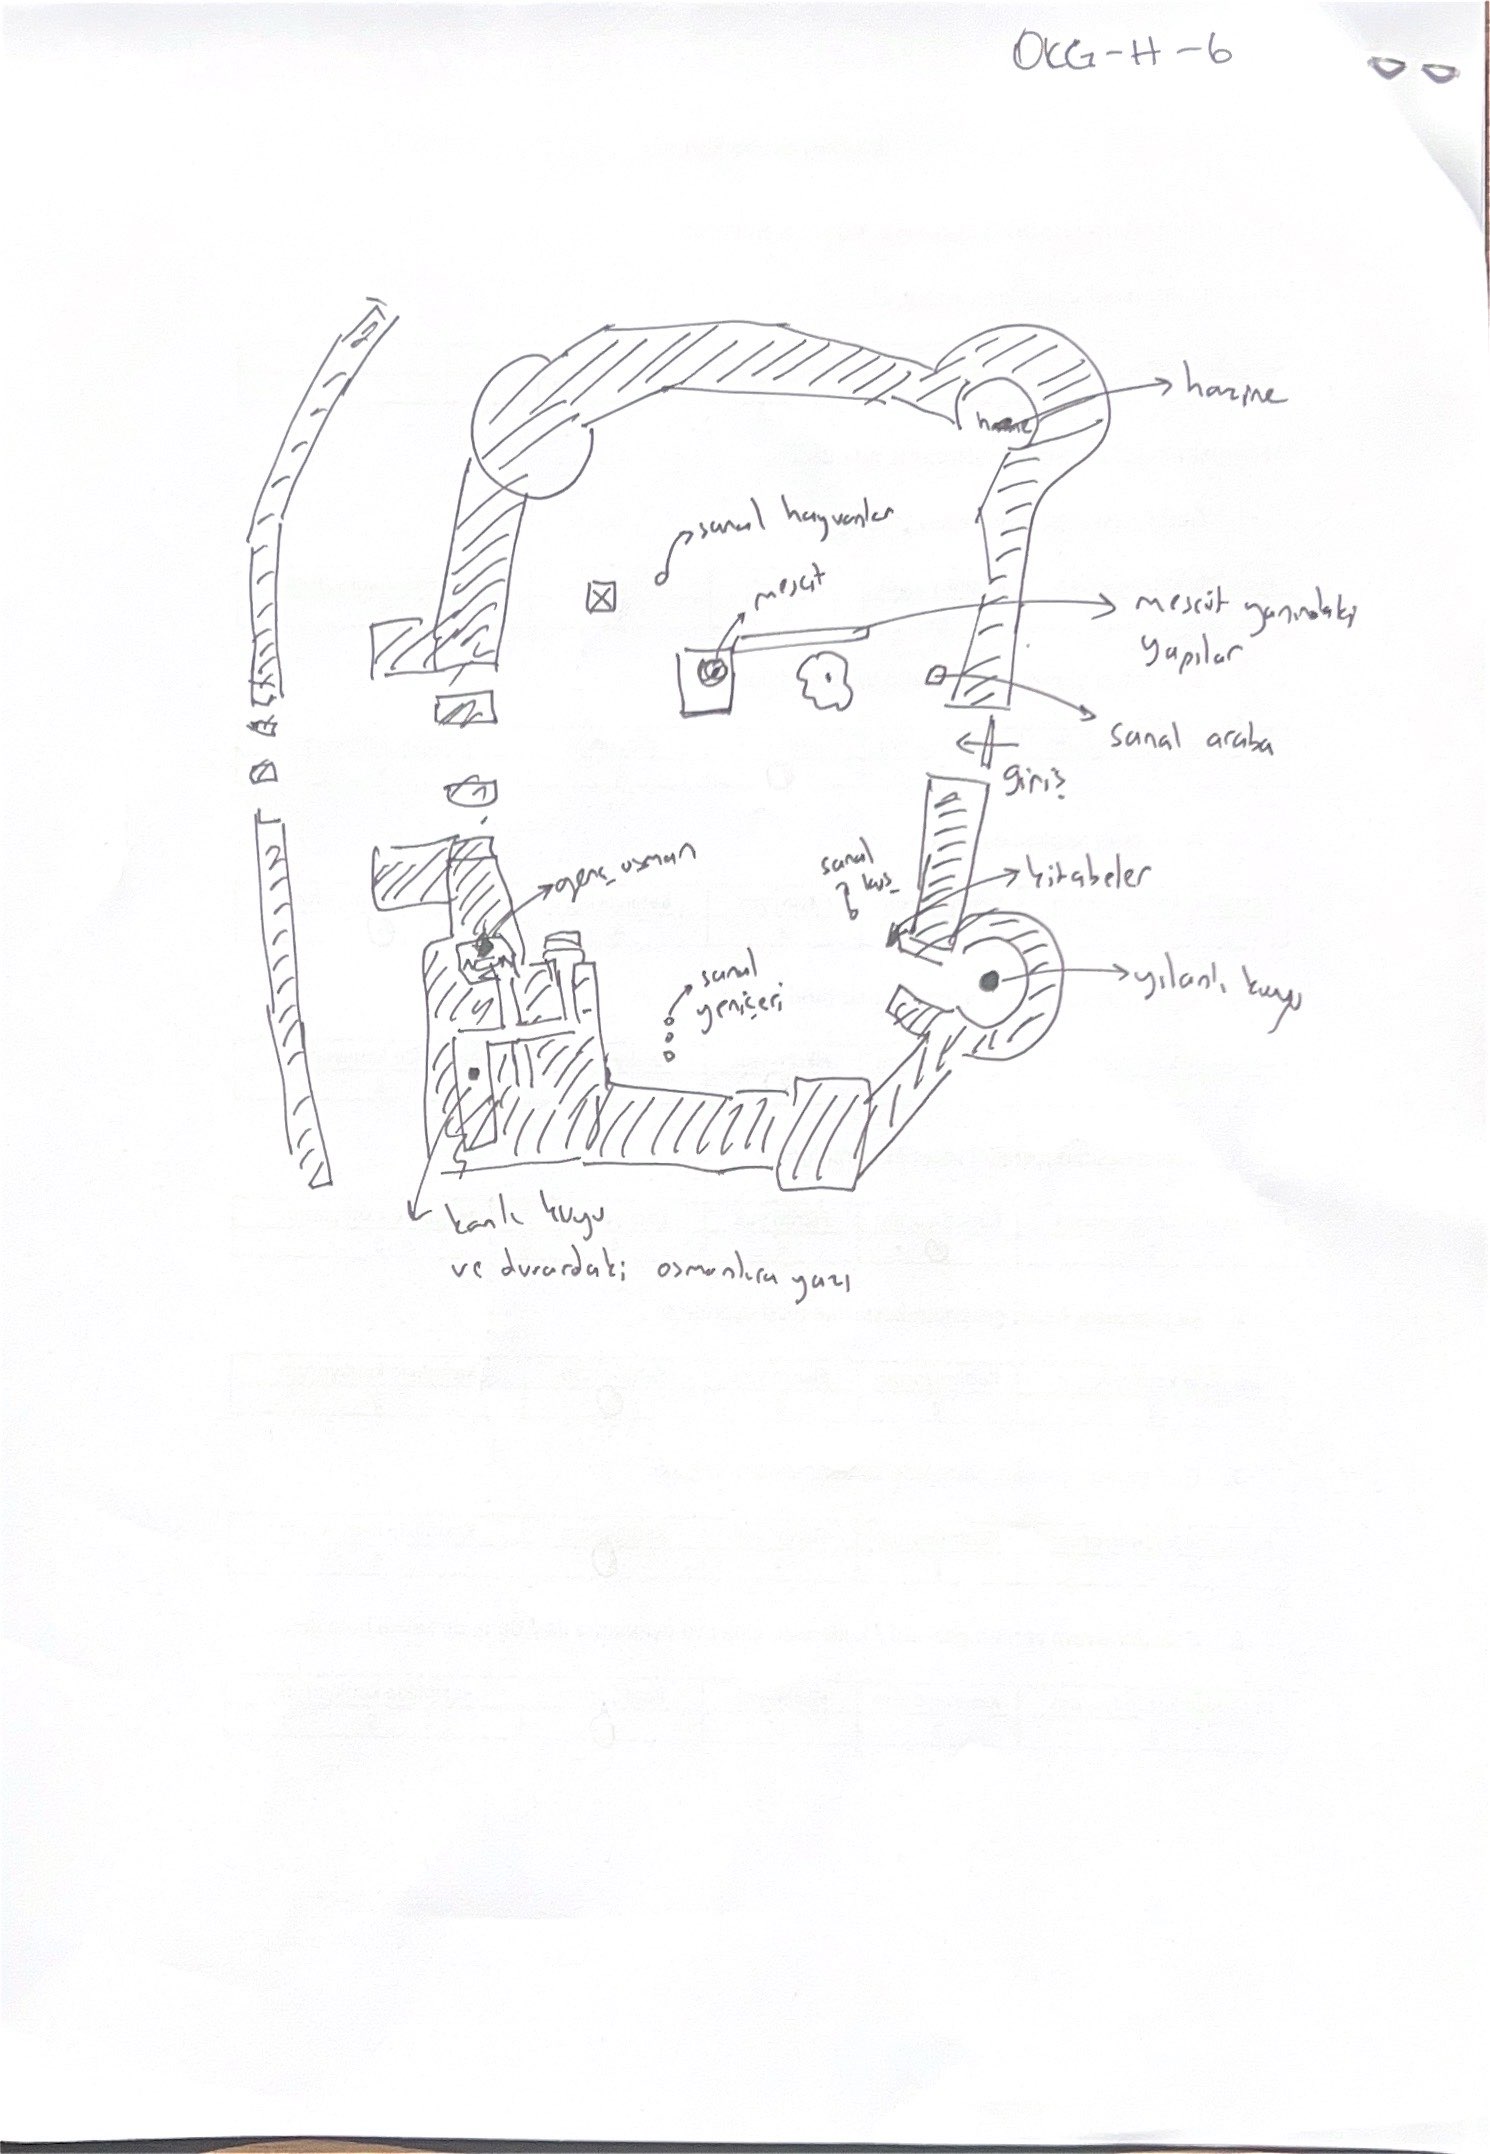 OKG-H-6
hazine
hazine
sanal hayvanlar
mescit
mescit yanındaki
yapılar
sanal araba
giriş
sanal
kuş
kitabeler
genç osman
sanal
yeniçeri
yılanlı kuyu
kanlı kuyu
ve duvardaki osmanlıca yazı